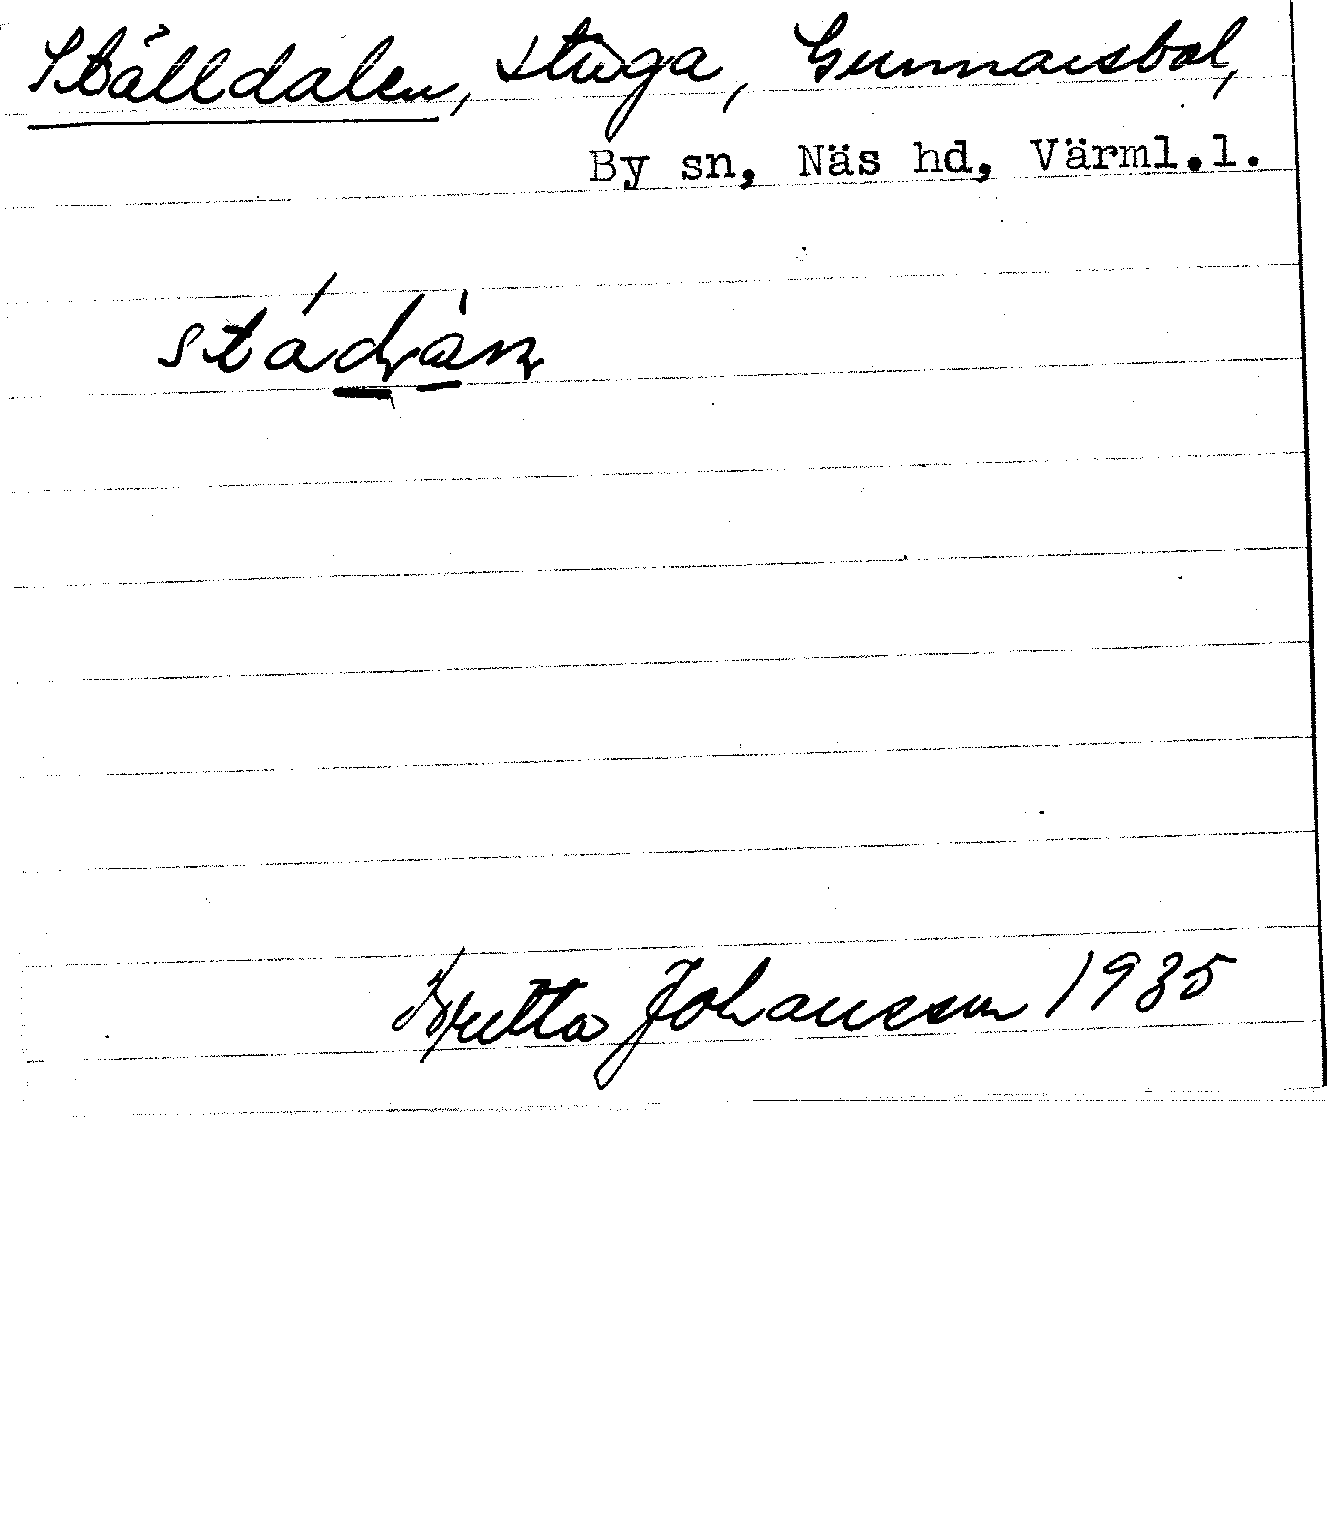 Ställdalen, stuga, Gunnarsbol,
By sn, Näs hd, Värml.l.
Britta Johansson 1935